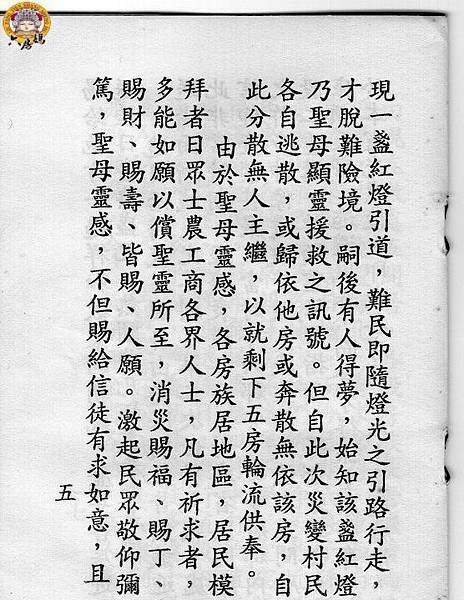 六房媽
現一盞紅燈引道，難民即隨燈光之引路行走，
才脫難險境。嗣後有人得夢，始知該盞紅燈
乃聖母顯靈援救之訊號。但自此次災變村民
各自逃散，或歸依他房或奔散無依該房，自
此分散無人主繼，以就剩下五房輪流供奉。
由於聖母靈感，各房族居地區，居民模
拜者日眾士農工商各界人士，凡有祈求者，
多能如願以償聖靈所至，消災賜福、賜丁、
賜財、賜壽、皆賜、人願。激起民眾敬仰彌
篤，聖母靈感，不但賜給信徒有求如意，且
五